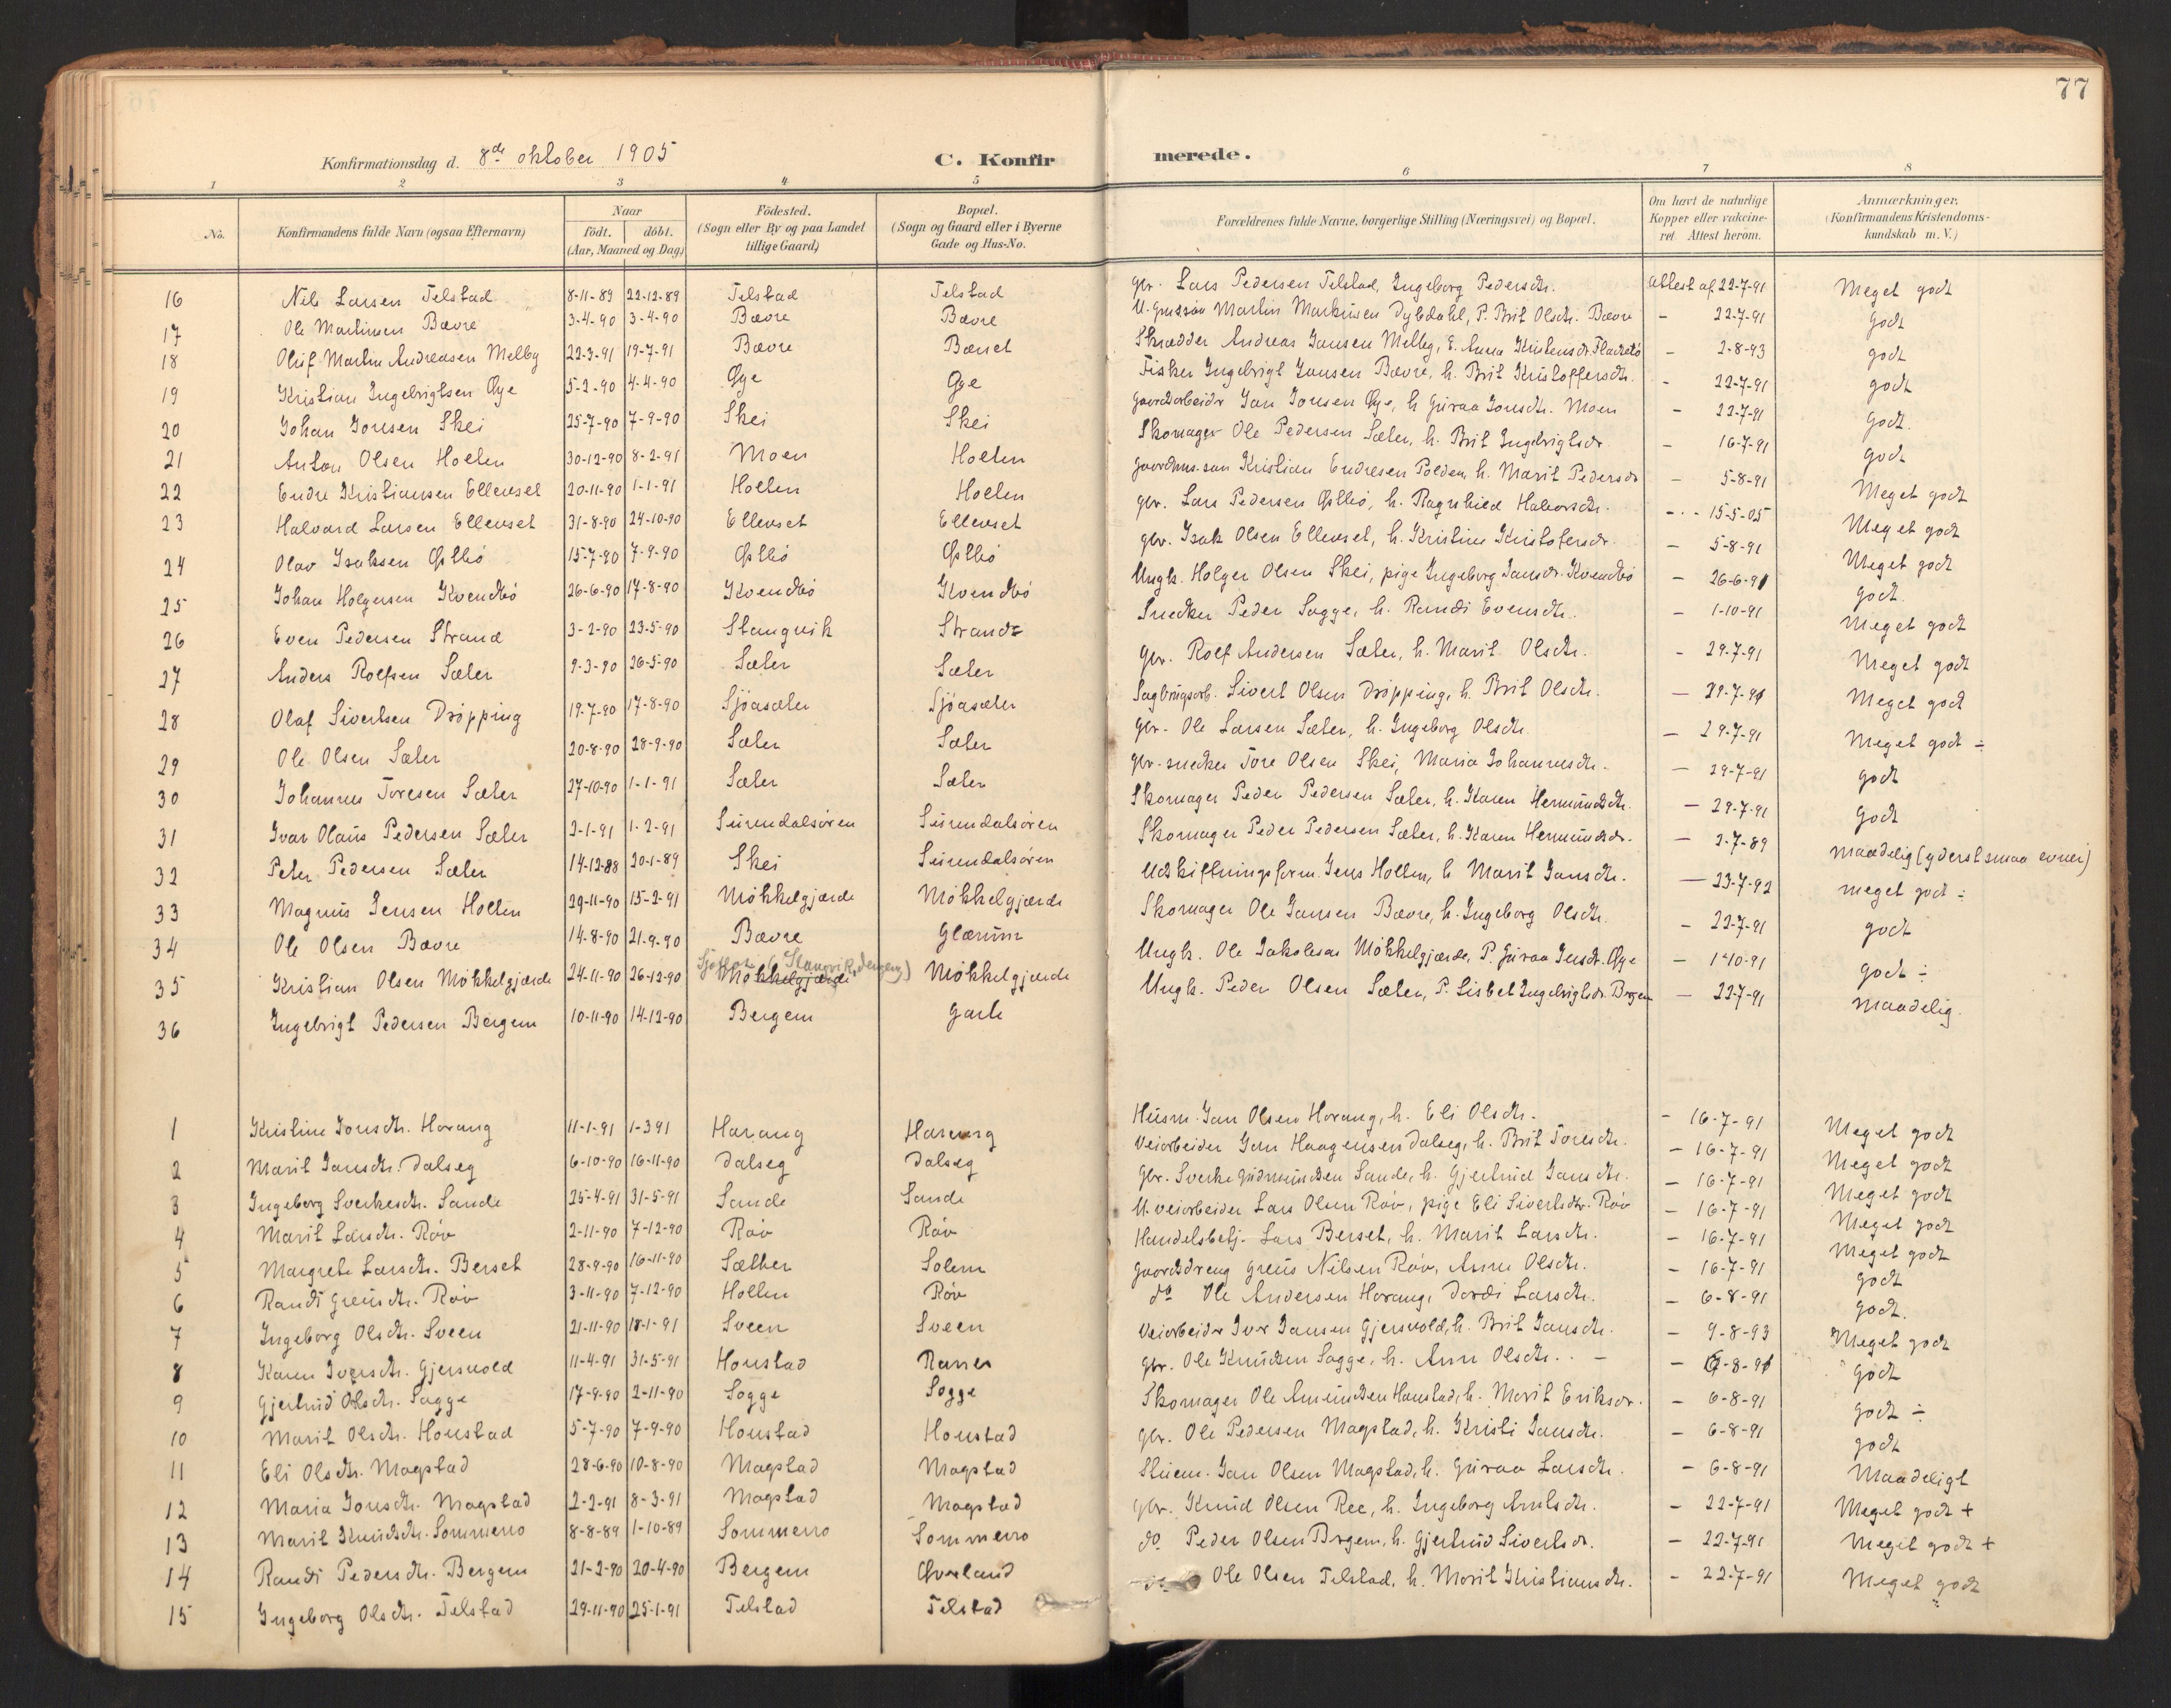 77
Konfirmationsdag d. 8de oktober 1905
C. Konfirmerede.
1 2 3 4 5 6 7 8
No.
Konfirmandens fulde Navn (ogsaa Efternavn)
Naar
født. | döbt.
(Aar, Maaned og Dag)
Födested.
(Sogn eller By og paa Landet
tillige Gaard)
Bopæl.
(Sogn og Gaard eller i Byerne
Gade og Hus-No.
Forældrenes fulde Navne, borgerlige Stilling (Næringsvei) og Bopæl.
Om havt de naturlige
Kopper eller vakcine-
ret. Attest herom.
Anmærkninger.
(Konfirmandens Kristendoms-
kundskab m. V.)
16 Nils Larsen Telstad 8-11-89 22-12-89 Telstad Telstad gbr. Lars Pedersen Telstad, Ingeborg Pedersdtr. attest af 22-7-91 Meget godt
17 Ole Martinsen Bævre 3-4-90 3-4-90 Bævre Bævre Martin Markussen Dybdahl, P. Brit Olsdtr. Bævre - 22-7-91 godt
18 Oluf Martin Andreasen Melby 22-3-91 19-7-91 Bævre Skrædder Andreas Jansen Melby, E. Anna Kristensdr. - 2-8-93 godt
19 Kristian Ingebrigtsen Øye 5-2-90 4-4-90 Øye Øye Fisker Ingebrigt Jansen Bævre, h. Brit Kristoffersdtr. - 22-7-91 godt
20 Johan Jonsen Skei 25-7-90 7-9-90 Skei Skei gaardarbeider Jon Jonsen Øye, h Guraa Jonsdtr. Moen - 22-7-91 godt.
21 Anton Olsen Holten 30-12-90 8-2-91 Moen Holten Skomager Ole Pedersen Sæter, h. Brit Ingebrigtsdr. - 16-7-91 godt
22 Endre Kristiansen Ellevset 20-11-90 1-1-91 Holten Holten Kristian Endresen Polden, h. Marit Pedersdr - 5-8-91 Meget godt
23 Halvard Larsen Ellevset 31-8-90 24-10-90 Ellevset Ellevset gbr. Lars Pedersen Østbö, h. Ragnhild Halvorsdtr. - 15-5-05 Meget godt
24 Olav Isaksen Østbö 15-7-90 7-9-90 Østbö Østbö gbr. Isak Olsen Ellevset, h. Kristine Kristofersdr. - 5-8-91 Meget godt
25 Johan Holgersen Kvendbö 26-6-90 17-8-90 Kvendbö Kvendbö Ungk. Holger Olsen Skei, pige Ingeborg Jansdr. Kvendbö - 26-6-91 godt.
26 Even Pedersen Strand 3-2-90 23-5-90 Stangvik Strand Snedker Peder Sogge, h. Randi Evensdtr. - 1-10-91 Meget godt
27 Anders Rolfsen Sæter 9-3-90 26-5-90 Sæter Sæter gbr. Rolf Andersen Sæter, h. Marit Olsdtr. - 29-7-91 Meget godt
28 Olaf Sivertsen Dröpping 19-7-90 17-8-90 Sjöasæter Sjöasæter Sagbrugsarb. Sivert Olsen Dröpping, h. Brit Olsdtr. - 29-7-91 Meget godt
29 Ole Olsen Sæter 20-8-90 28-9-90 Sæter Sæter gbr. Ole Larsen Sæter, h. Ingeborg Olsdtr. - 29-7-91 Meget godt ÷
30 Johannes Toresen Sæter 27-10-90 1-1-91 Sæter Sæter gbr.-snedker Tore Olsen Skei, Maria Johannesdtr. - 29-7-91 godt
31 Ivar Olaus Pedersen Sæter 2-1-91 1-2-91 Surendalsören Surendalsören Skomager Peder Pedersen Sæter, h. Karen Hermundsdtr. - 29-7-91 godt
32 Peter Pedersen Sæter 14-12-88 20-1-89 Skei Surendalsören Skomager Peder Pedersen Sæter, h. Karen Hermundsdr. - 2-7-89 maadelig (yderst smaa evner)
33 Magnus Jensen Holten 29-11-90 15-2-91 Mökkelgjærde Mökkelgjærde Udskiftningsform. Jens Holten, h Marit Jansdtr. - 23-7-92 meget godt ÷
34 Ole Olsen Bævre 14-8-90 21-9-90 Bævre Glærum Skomager Ole Jansen Bævre, h. Ingeborg Olsdtr. - 22-7-91 godt
35 Kristian Olsen Mökkelgjærde 24-11-90 26-12-90 Mökkelgjærde Mökkelgjærde Ungk. Ole Jakobsen Mökkelgjærde, P. Guraa Jensdtr. Øye - 1-10-91 godt ÷
36 Ingebrigt Pedersen Bergem 10-11-90 14-12-90 Bergem Ungk. Peder Olsen Sæter, P. Lisbet Ingebrigtsdr. Bergem - 22-7-91 maadelig.
1 Kristine Jonsdtr. Harang 11-1-91 1-3 91 Harang Harang Husm. Jon Olsen Harang, h. Eli Olsdtr. - 16-7-91 Meget godt
2 Marit Jansdtr. Dalseg 6-10-90 16-11-90 Dalseg Dalseg Veiarbeider Jan Haagensen Dalseg, h. Brit Toresdtr. - 16-7-91 Meget godt
3 Ingeborg Sverkesdtr. Sande 25-4-91 31-5-91 Sande Sande gbr. Sverke Gudmundsen Sande, h. Gjertrud Jansdtr. - 16-7-91 Meget godt
4 Marit Larsdtr. Röv 2-11-90 7-12-90 Röv Röv U. veiarbeider Lars Olsen Röv, pige Eli Sivertsdtr. Röv - 16-7-91 Meget godt
5 Margrete Larsdtr. Berset 28-9-90 16-11-90 Sæther Solem Handelsbetj. Lars Berset, h. Marit Larsdtr. - 16-7-91 Meget godt
6 Randi Greusdtr. Röv 3-11-90 7-12-90 Holten Röv gaardsdreng Greus Nilsen Röv, Anne Olsdtr. - 16-7-91 godt
7 Ingeborg Olsdtr. Sveen 21-11-90 18-1-91 Sveen Sveen do Ole Andersen Harang, Dordi Larsdtr. - 6-8-91 godt.
8 Karen Iversdtr. Gjersvold 11-4-91 31-5-91 Honstad Veiarbeider Iver Jansen Gjersvold, h. Brit Jansdtr. - 9-8-93 Meget godt
9 Gjertrud Olsdtr. Sogge 17-9-90 2-11-90 Sogge Sogge gbr. Ole Knudsen Sogge, h. Ann Olsdtr. - 6-8-91 godt
10 Marit Olsdtr. Honstad 5-7-90 7-9-90 Honstad Honstad Skomager Ole Amundsen Honstad, h. Marit Eriksdr. - 6-8-91 godt ÷
11 Eli Olsdtr. Mogstad 28-6-90 10-8-90 Mogstad Mogstad gbr. Ole Pedersen Mogstad, h. Kristi Jansdtr. - 6-8-91 godt
12 Maria Jonsdtr. Mogstad 2-2-91 8-3-91 Mogstad Mogstad Jon Olsen Mogstad, h. Guraa Larsdtr. - 6-8-91 Maadeligt
13 Marit Knudsdtr. Sommerro 8-8-89 1-10-89 Sommerro Sommerro gbr. Knud Olsen Ree, h. Ingeborg Arntsdtr. - 22-7-91 Meget godt +
14 Randi Pedersdtr. Bergem 21-2-90 20-4-90 Bergem Øverland do Peder Olsen Bergem, h. Gjertrud Sivertsdr. - 22-7-91 Meget godt +
15 Ingeborg Olsdtr. Telstad 29-11-90 25-1-91 Telstad Telstad do Ole Olsen Telstad, h. Marit Kristiansdtr. - 22-7-91 Meget godt